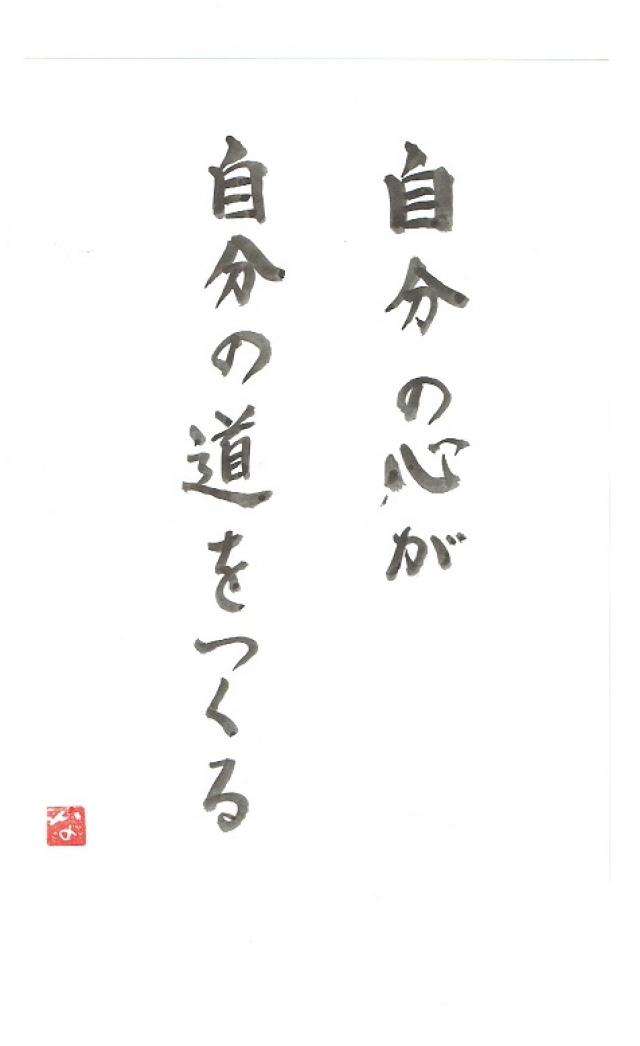 自分の心が
自分の道をつくる